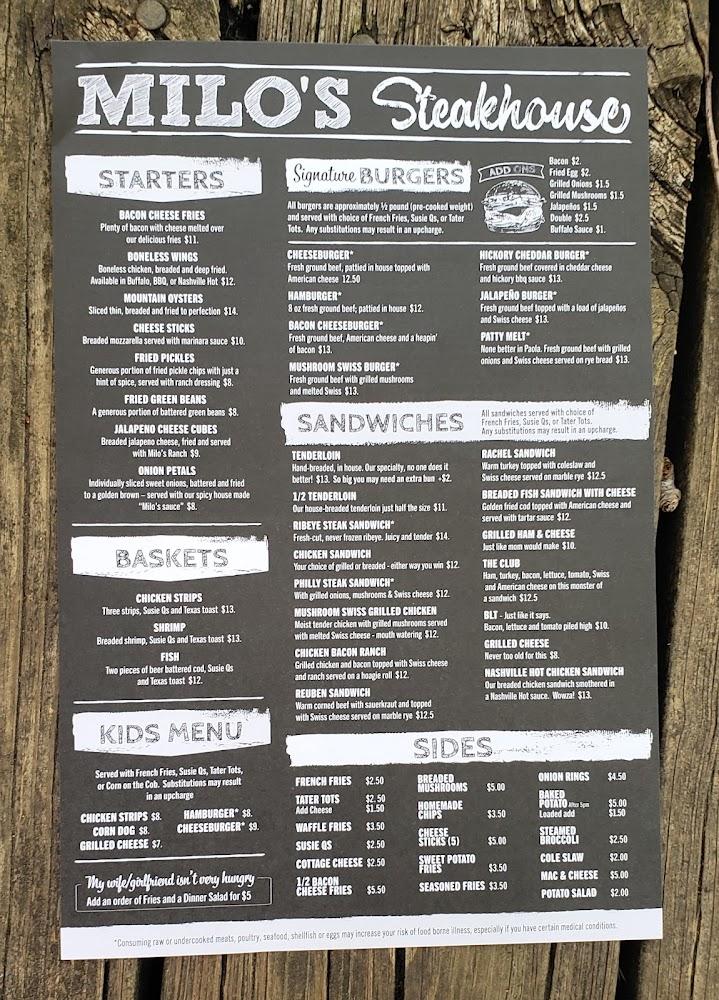 MILO'S Steakhouse
STARTERS
BACON CHEESE FRIES
Plenty of bacon with cheese melted over
our delicious fries $11.
BONELESS WINGS
Boneless chicken, breaded and deep fried.
Available in Buffalo, BBQ, or Nashville Hot $12.
MOUNTAIN OYSTERS
Sliced thin, breaded and fried to perfection $14.
CHEESE STICKS
Breaded mozzarella served with marinara sauce $10.
FRIED PICKLES
Generous portion of fried pickle chips with just a
hint of spice, served with ranch dressing $8.
FRIED GREEN BEANS
A generous portion of battered green beans $8.
JALAPENO CHEESE CUBES
Breaded jalapeno cheese, fried and served
with Milo's Ranch $9.
ONION PETALS
Individually sliced sweet onions, battered and fried
to a golden brown – served with our spicy house made
"Milo's sauce" $8.
BASKETS
CHICKEN STRIPS
Three strips, Susie Qs and Texas toast $13.
SHRIMP
Breaded shrimp, Susie Qs and Texas toast $13.
FISH
Two pieces of beer battered cod, Susie Qs
and Texas toast $12.
KIDS MENU
Served with French Fries, Susie Qs, Tater Tots,
or Corn on the Cob. Substitutions may result
in an upcharge
CHICKEN STRIPS $8.
CORN DOG $8.
GRILLED CHEESE $7.
HAMBURGER* $8.
CHEESEBURGER* $9.
My wife/girlfriend isn't very hungry
Add an order of Fries and a Dinner Salad for $5
Signature BURGERS
All burgers are approximately ½ pound (pre-cooked weight)
and served with choice of French Fries, Susie Qs, or Tater
Tots. Any substitutions may result in an upcharge.
ADD ONS
Bacon $2.
Fried Egg $2.
Grilled Onions $1.5
Grilled Mushrooms $1.5
Jalapeños $1.5
Double $2.5
Buffalo Sauce $1.
CHEESEBURGER*
Fresh ground beef, pattied in house topped with
American cheese 12.50
HAMBURGER*
8 oz fresh ground beef; pattied in house $12.
BACON CHEESEBURGER*
Fresh ground beef, American cheese and a heapin'
of bacon $13.
MUSHROOM SWISS BURGER*
Fresh ground beef with grilled mushrooms
and melted Swiss $13.
HICKORY CHEDDAR BURGER*
Fresh ground beef covered in cheddar cheese
and hickory bbq sauce $13.
JALAPEÑO BURGER*
Fresh ground beef topped with a load of jalapeños
and Swiss cheese $13.
PATTY MELT*
None better in Paola. Fresh ground beef with grilled
onions and Swiss cheese served on rye bread $13.
SANDWICHES
All sandwiches served with choice of
French Fries, Susie Qs, or Tater Tots.
Any substitutions may result in an upcharge.
TENDERLOIN
Hand-breaded, in house. Our specialty, no one does it
better! $13. So big you may need an extra bun +$2.
1/2 TENDERLOIN
Our house-breaded tenderloin just half the size $11.
RIBEYE STEAK SANDWICH*
Fresh-cut, never frozen ribeye. Juicy and tender $14.
CHICKEN SANDWICH
Your choice of grilled or breaded - either way you win $12.
PHILLY STEAK SANDWICH*
With grilled onions, mushrooms & Swiss cheese $12.
MUSHROOM SWISS GRILLED CHICKEN
Moist tender chicken with grilled mushrooms served
with melted Swiss cheese - mouth watering $12.
CHICKEN BACON RANCH
Grilled chicken and bacon topped with Swiss cheese
and ranch served on a hoagie roll $12.
REUBEN SANDWICH
Warm corned beef with sauerkraut and topped
with Swiss cheese served on marble rye $12.5
RACHEL SANDWICH
Warm turkey topped with coleslaw and
Swiss cheese served on marble rye $12.5
BREADED FISH SANDWICH WITH CHEESE
Golden fried cod topped with American cheese and
served with tartar sauce $12.
GRILLED HAM & CHEESE
Just like mom would make $10.
THE CLUB
Ham, turkey, bacon, lettuce, tomato, Swiss
and American cheese on this monster of
a sandwich $12.5
BLT - Just like it says.
Bacon, lettuce and tomato piled high $10.
GRILLED CHEESE
Never too old for this $8.
NASHVILLE HOT CHICKEN SANDWICH
Our breaded chicken sandwich smothered in
a Nashville Hot sauce. Wowza! $13.
SIDES
FRENCH FRIES $2.50
TATER TOTS $2.50
Add Cheese $1.50
WAFFLE FRIES $3.50
SUSIE QS $2.50
COTTAGE CHEESE $2.50
1/2 BACON
CHEESE FRIES $5.50
BREADED
MUSHROOMS $5.00
HOMEMADE
CHIPS $3.50
CHEESE
STICKS (5) $5.00
SWEET POTATO
FRIES $3.50
SEASONED FRIES $3.50
ONION RINGS $4.50
BAKED
POTATO After 5pm $5.00
Loaded add $1.50
STEAMED
BROCCOLI $2.50
COLE SLAW $2.00
MAC & CHEESE $5.00
POTATO SALAD $2.00
*Consuming raw or undercooked meats, poultry, seafood, shellfish or eggs may increase your risk of food borne illness, especially if you have certain medical conditions.